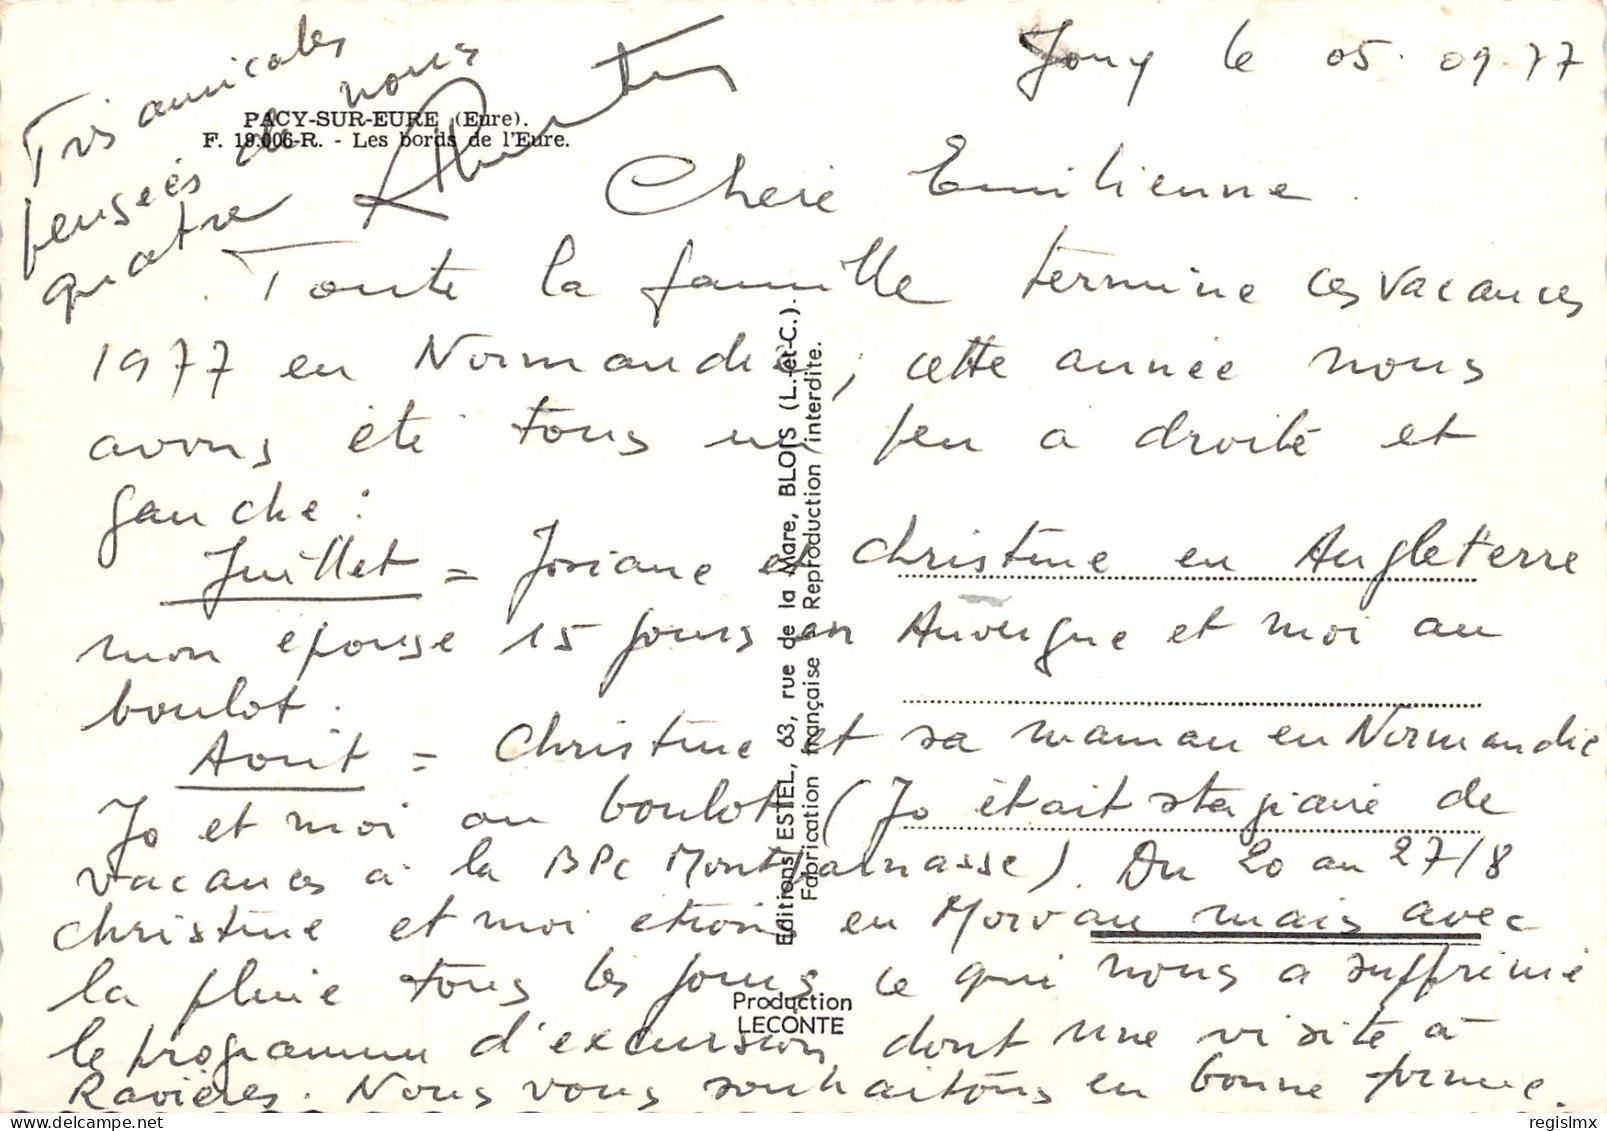 Jouy le 05.09.77
Très amicales
pensées de nous
quatre
PACY-SUR-EURE (Eure).
F. 19.006-R. - Les bords de l'Eure.
Chère Emilienne.
Toute la famille termine ces vacances
1977 en Normandie, cette année nous
avons été tous un peu à droite et
gauche :
Juillet = Josiane et christine en Angleterre
mon epouse 15 jours en Auvergne et moi au
boulot.
Août = christine et sa maman en Normandie
Jo et moi au boulot (Jo était stagiaire de
vacances à la BPC Montparnasse). Du 20 au 27/8
christine et moi etions en Morvan mais avec
la pluie tous les jours ce qui nous a supprimé
le programme d'excursion dont une visite à
Ravières. Nous vous souhaitons en bonne forme.
Editions ESTEL, 63, rue de la Mare, BLOIS (L.-et-C.).
Fabrication française Reproduction interdite.
Production
LECONTE
www.delcampe.net
regislmx